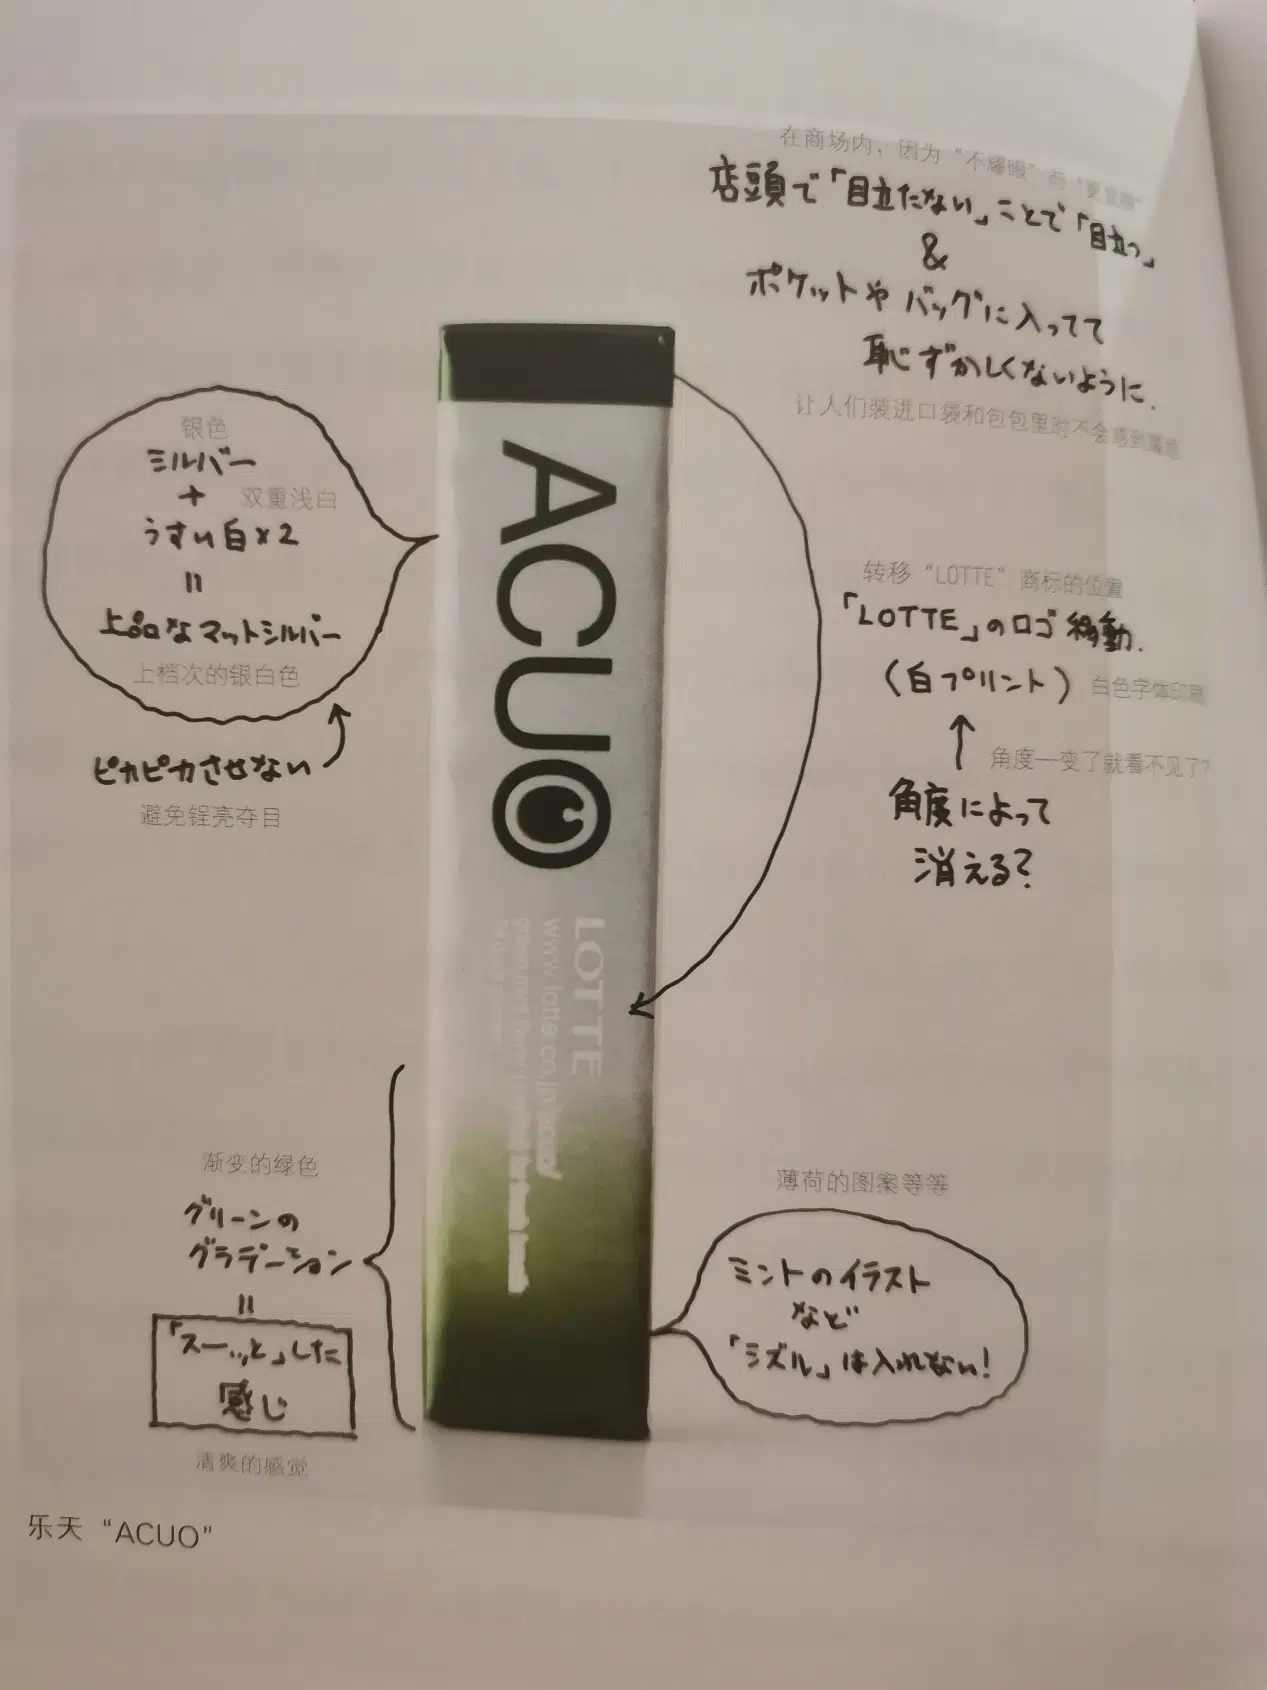 在商场内，因为“不耀眼”而“更显眼”
店頭で「目立たない」ことで「目立つ」
&
ポケットや バッグに入ってて
恥ずかしくないように.
让人们装进口袋和包包里时不会感到尴尬
银色
ミルバー
+
双重浅白
うすい白×2
=
上品なマットシルバー
上档次的银白色
ピカピカさせない
避免锃亮夺目
ACUO
LOTTE
www.lotte.co.jp/acuo/
转移“LOTTE”商标的位置
「LOTTE」のロゴ移動.
(白プリント)
白色字体印刷
角度一变了就看不见了?
角度によって
消える?
渐变的绿色
グリーンの
グラデーション
=
「スーッと」した
感じ
清爽的感觉
薄荷的图案等等
ミントのイラスト
など
「シズル」は入れない!
乐天“ACUO”